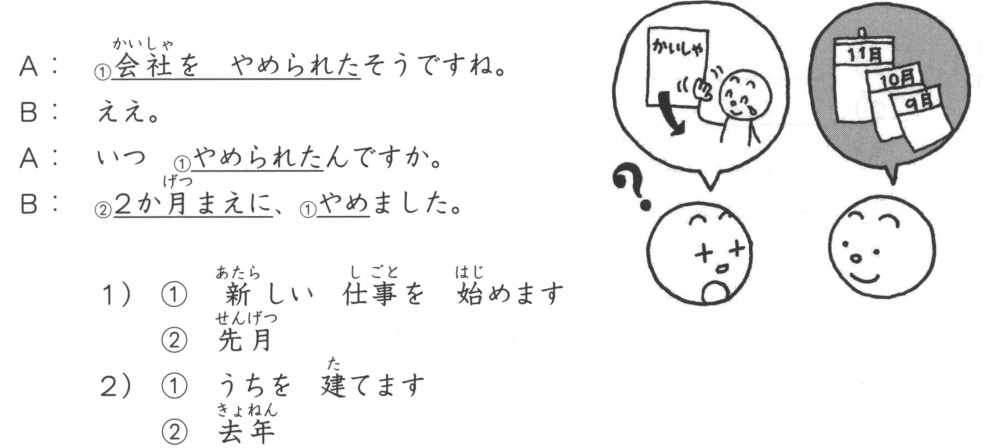 A： ①会社を やめられたそうですね。
B： ええ。
A： いつ ①やめられたんですか。
B： ②2か月まえに、①やめました。
1） ① 新しい 仕事を 始めます
② 先月
2） ① うちを 建てます
② 去年
かいしゃ
げつ
あたら
しごと
はじ
せんげつ
た
きょねん
かいしゃ
11月
10月
9月
?